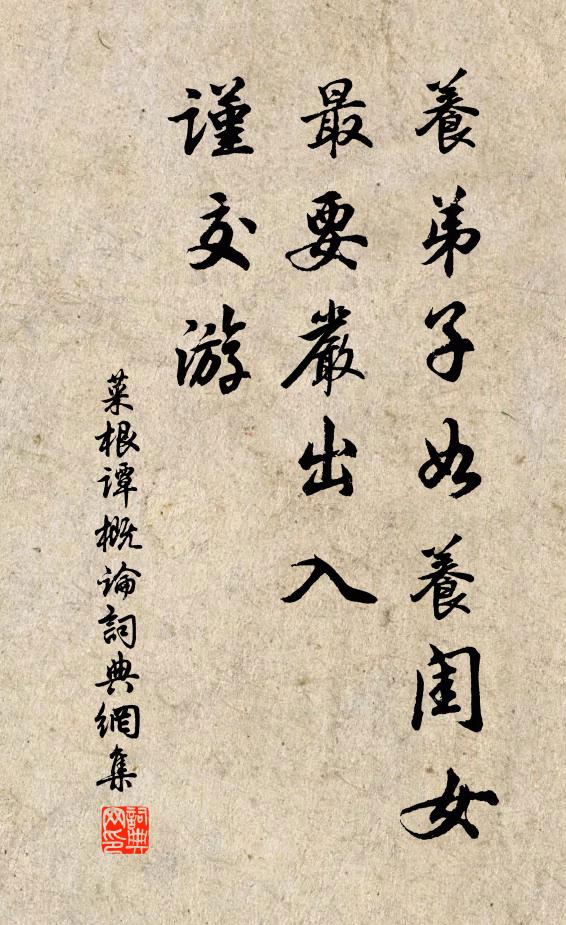 養弟子如養闺女
最要嚴出入
谨交游
菜根谭概論詞典網集
詞典
网印